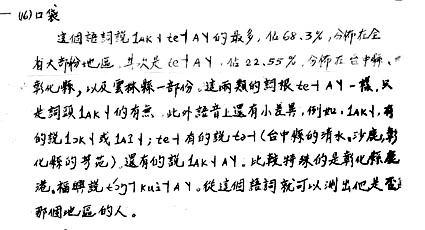 (46)口袋
這個語詞說 lak˧ te˧ aʏ 的最多,佔68.3%,分佈在全
省大部份地區。其次是 te˧ aʏ,佔22.55%,分佈在台中縣、
彰化縣,以及雲林縣一部份。這兩類的詞根 te˧ aʏ 一樣,只
是詞頭 lak˧ 的有無。此外語音上還有小差異,例如:lak˧,有
的說 lɔk˧ 或 laɪ˧;te˧ 有的說 tə˧(台中縣的清水、沙鹿,彰
化縣的芳苑)。還有的說 lak˧ aʏ。比較特殊的是彰化縣鹿
港、福興說 kui˧ aʏ。從這個語詞就可以測出他是
那個地區的人。